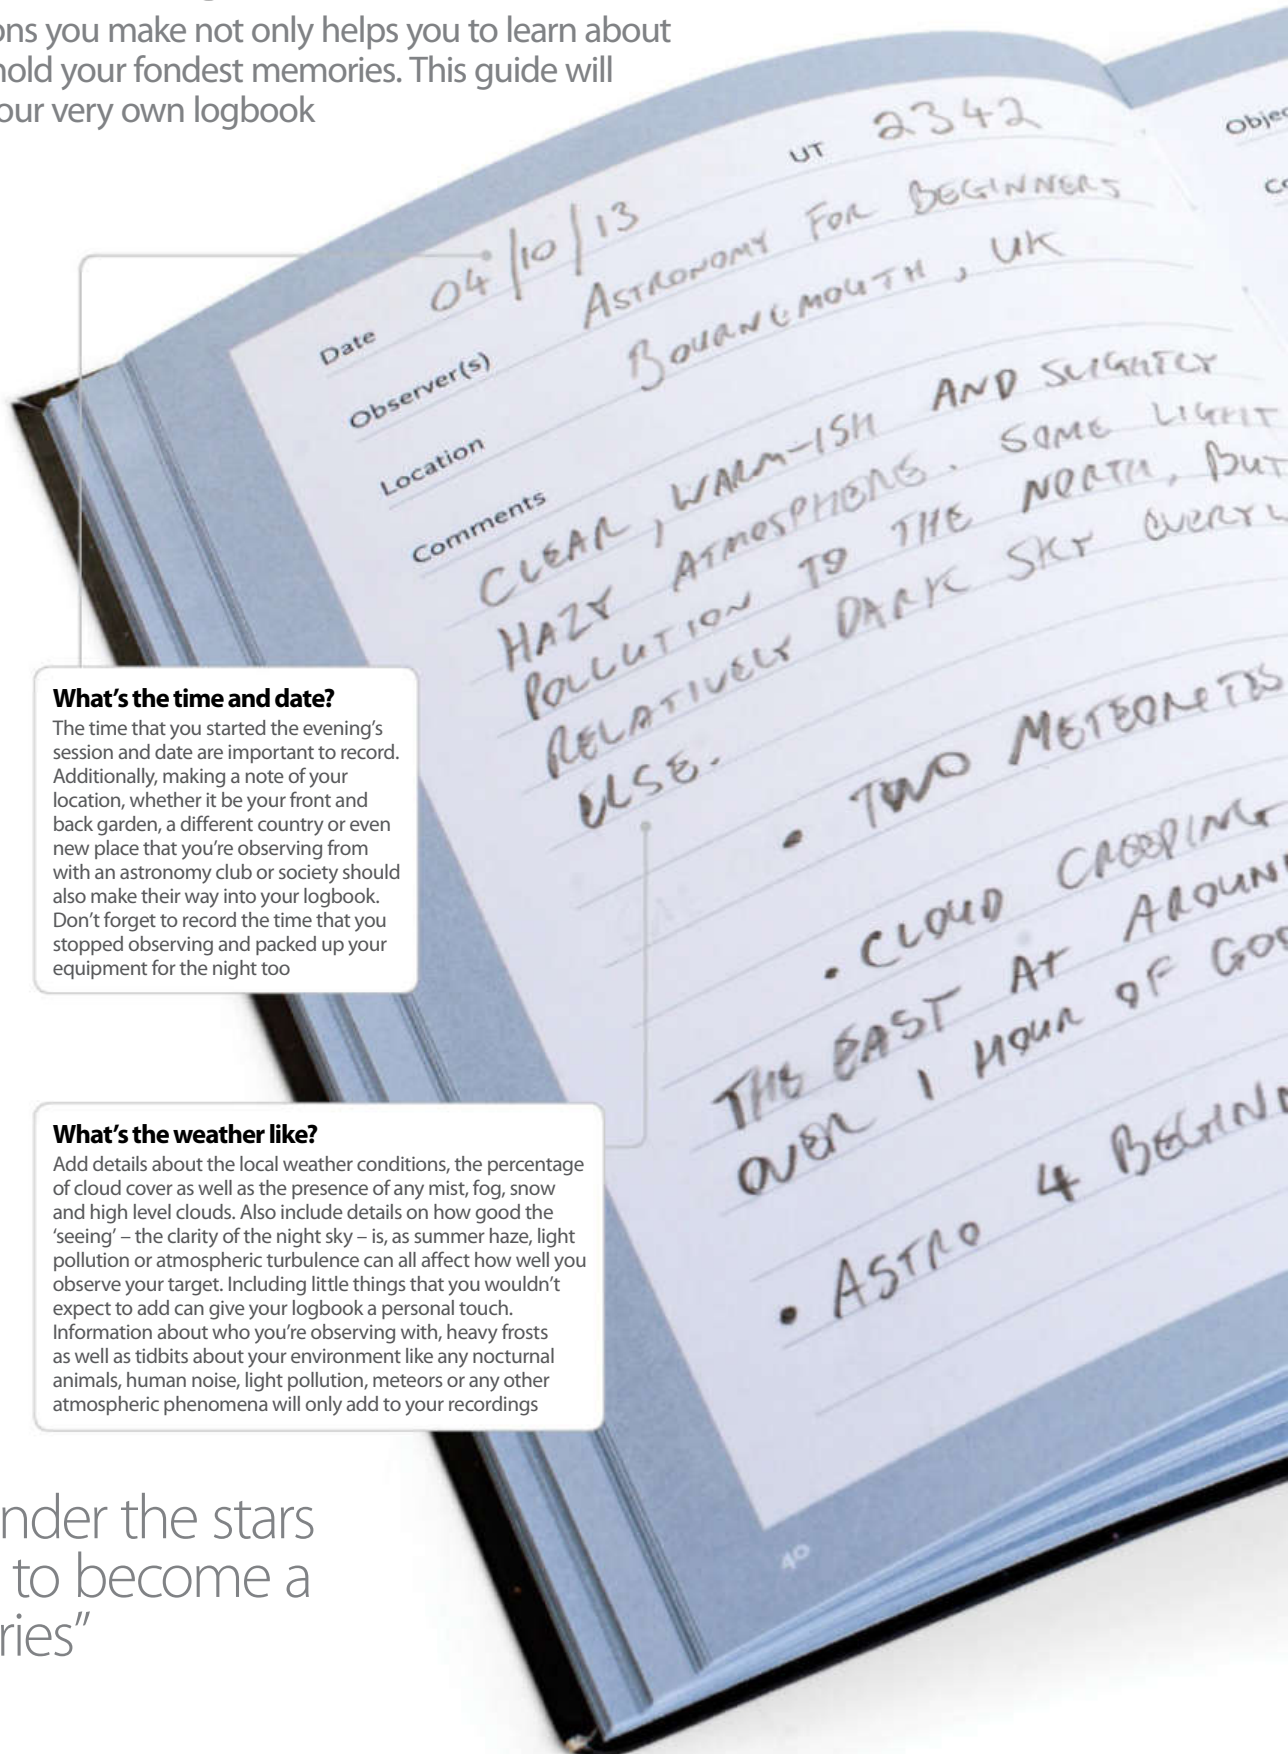 ons you make not only helps you to learn about
hold your fondest memories. This guide will
our very own logbook
UT 2342
Date 04/10/13
Observer(s) ASTRONOMY FOR BEGINNERS
Location BOURNEMOUTH, UK
Comments
CLEAR, WARM-ISH AND SLIGHTLY
HAZY ATMOSPHERE. SOME LIGHT
POLLUTION TO THE NORTH, BUT
RELATIVELY DARK SKY
ELSE.
• TWO
• CLOUD CREEPING
THE EAST AT
OVER 1 HOUR OF
• ASTRO 4
40
What's the time and date?
The time that you started the evening's
session and date are important to record.
Additionally, making a note of your
location, whether it be your front and
back garden, a different country or even
new place that you're observing from
with an astronomy club or society should
also make their way into your logbook.
Don't forget to record the time that you
stopped observing and packed up your
equipment for the night too
What's the weather like?
Add details about the local weather conditions, the percentage
of cloud cover as well as the presence of any mist, fog, snow
and high level clouds. Also include details on how good the
‘seeing’ – the clarity of the night sky – is, as summer haze, light
pollution or atmospheric turbulence can all affect how well you
observe your target. Including little things that you wouldn't
expect to add can give your logbook a personal touch.
Information about who you're observing with, heavy frosts
as well as tidbits about your environment like any nocturnal
animals, human noise, light pollution, meteors or any other
atmospheric phenomena will only add to your recordings
nder the stars
to become a
ries”